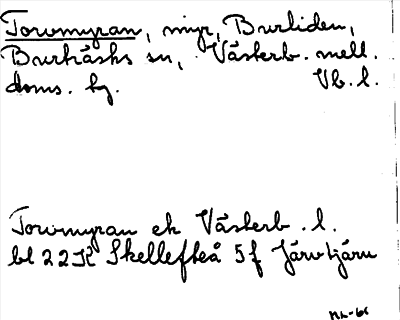 Torvmyran, myr, Burliden,
Burträsks sn, Västerb. mell.
doms. hg. Vb. l.
Torvmyran ek Västerb. l.
bl 22K Skellefteå 5f Järvtjärn